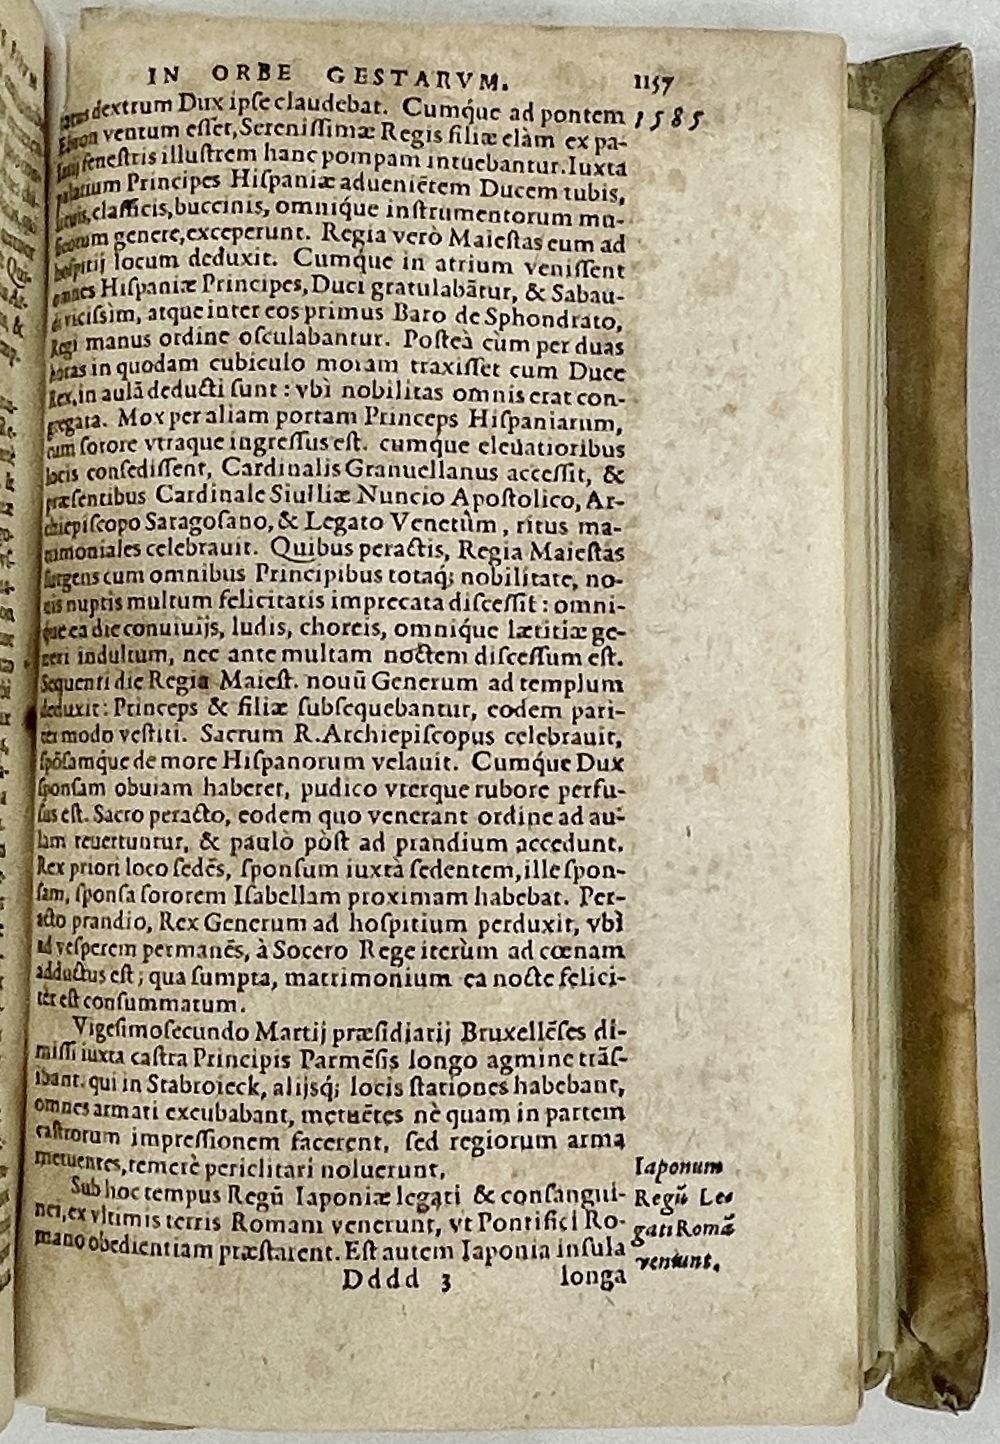 IN ORBE GESTARVM. 1157
dextrum Dux ipſe claudebat. Cumq́ue ad pontem 1585
Ebron ventum eſſet, Sereniſſimæ Regis filiæ clàm ex pa-
feneſtris illuſtrem hanc pompam intuebantur. Iuxta
palatium Principes Hiſpaniæ adueniẽtem Ducem tubis,
lituis, claſſicis, buccinis, omniq́ue inſtrumentorum mu-
ſicorum genere, exceperunt. Regia verò Maieſtas eum ad
hoſpitij locum deduxit. Cumq́ue in atrium veniſſent
omnes Hiſpaniæ Principes, Duci gratulabãtur, & Sabau-
di viciſsim, atque inter eos primus Baro de Sphondrato,
Regi manus ordine oſculabantur. Poſteà cùm per duas
horas in quodam cubiculo moram traxiſſet cum Duce
Rex, in aulã deducti ſunt: vbì nobilitas omnis erat con-
gregata. Mox per aliam portam Princeps Hiſpaniarum,
cum ſorore vtraque ingreſſus eſt. cumq́ue eleuatioribus
locis conſediſſent, Cardinalis Granuellanus acceſſit, &
præſentibus Cardinale Siuilliæ Nuncio Apoſtolico, Ar-
chiepiſcopo Saragoſano, & Legato Venetûm, ritus ma-
trimoniales celebrauit. Quibus peractis, Regia Maieſtas
ſurgens cum omnibus Principibus totaq́; nobilitate, no-
uis nuptis multum felicitatis imprecata diſceſſit: omni-
que ea die conuiuijs, ludis, choreis, omniq́ue lætitiæ ge-
neri indultum, nec ante multam noctem diſceſſum eſt.
Sequenti die Regia Maieſt. nouũ Generum ad templum
deduxit: Princeps & filiæ ſubſequebantur, eodem pari-
ter modo veſtiti. Sacrum R. Archiepiſcopus celebrauit,
ſpõſamq́ue de more Hiſpanorum velauit. Cumq́ue Dux
ſponſam obuiam haberet, pudico vterque rubore perfu-
ſus eſt. Sacro peracto, eodem quo venerant ordine ad au-
lam reuertuntur, & paulò pòſt ad prandium accedunt.
Rex priori loco ſedẽs, ſponſum iuxtà ſedentem, ille ſpon-
ſam, ſponſa ſororem Iſabellam proximam habebat. Per-
acto prandio, Rex Generum ad hoſpitium perduxit, vbì
ad veſperem permanẽs, à Socero Rege iterùm ad cœnam
adductus eſt; qua ſumpta, matrimonium ea nocte felici-
tèr eſt conſummatum.
Vigeſimoſecundo Martij præſidiarij Bruxellẽſes di-
miſſi iuxta caſtra Principis Parmẽſis longo agmine trãſ-
ibant. qui in Stabroieck, alijsq́; locis ſtationes habebant,
omnes armati excubabant, metuẽtes nè quam in partem
caſtrorum impreſſionem facerent, ſed regiorum arma
metuentes, temerè periclitari noluerunt.
Sub hoc tempus Regũ Iaponiæ legati & conſangui-
nei, ex vltimis terris Romam venerunt, vt Pontifici Ro-
mano obedientiam præſtarent. Eſt autem Iaponia inſula
Iaponum
Regũ Le-
gati Romã
veniunt.
Dddd 3 longa